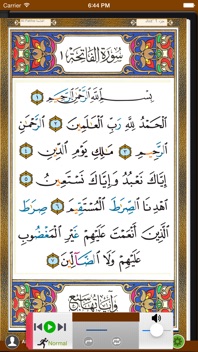 Carrier 6:44 PM
سُورَةُ الفَاتِحَة ١
بِسْمِ اللَّهِ الرَّحْمَٰنِ الرَّحِيمِ ١
الْحَمْدُ لِلَّهِ رَبِّ الْعَالَمِينَ ٢ الرَّحْمَٰنِ
الرَّحِيمِ ٣ مَٰلِكِ يَوْمِ الدِّينِ ٤
إِيَّاكَ نَعْبُدُ وَإِيَّاكَ نَسْتَعِينُ ٥
اهْدِنَا الصِّرَٰطَ الْمُسْتَقِيمَ ٦ صِرَٰطَ
الَّذِينَ أَنْعَمْتَ عَلَيْهِمْ غَيْرِ الْمَغْضُوبِ
عَلَيْهِمْ وَلَا الضَّالِّينَ ٧
وَآيَاتُهَا سَبْع
Normal